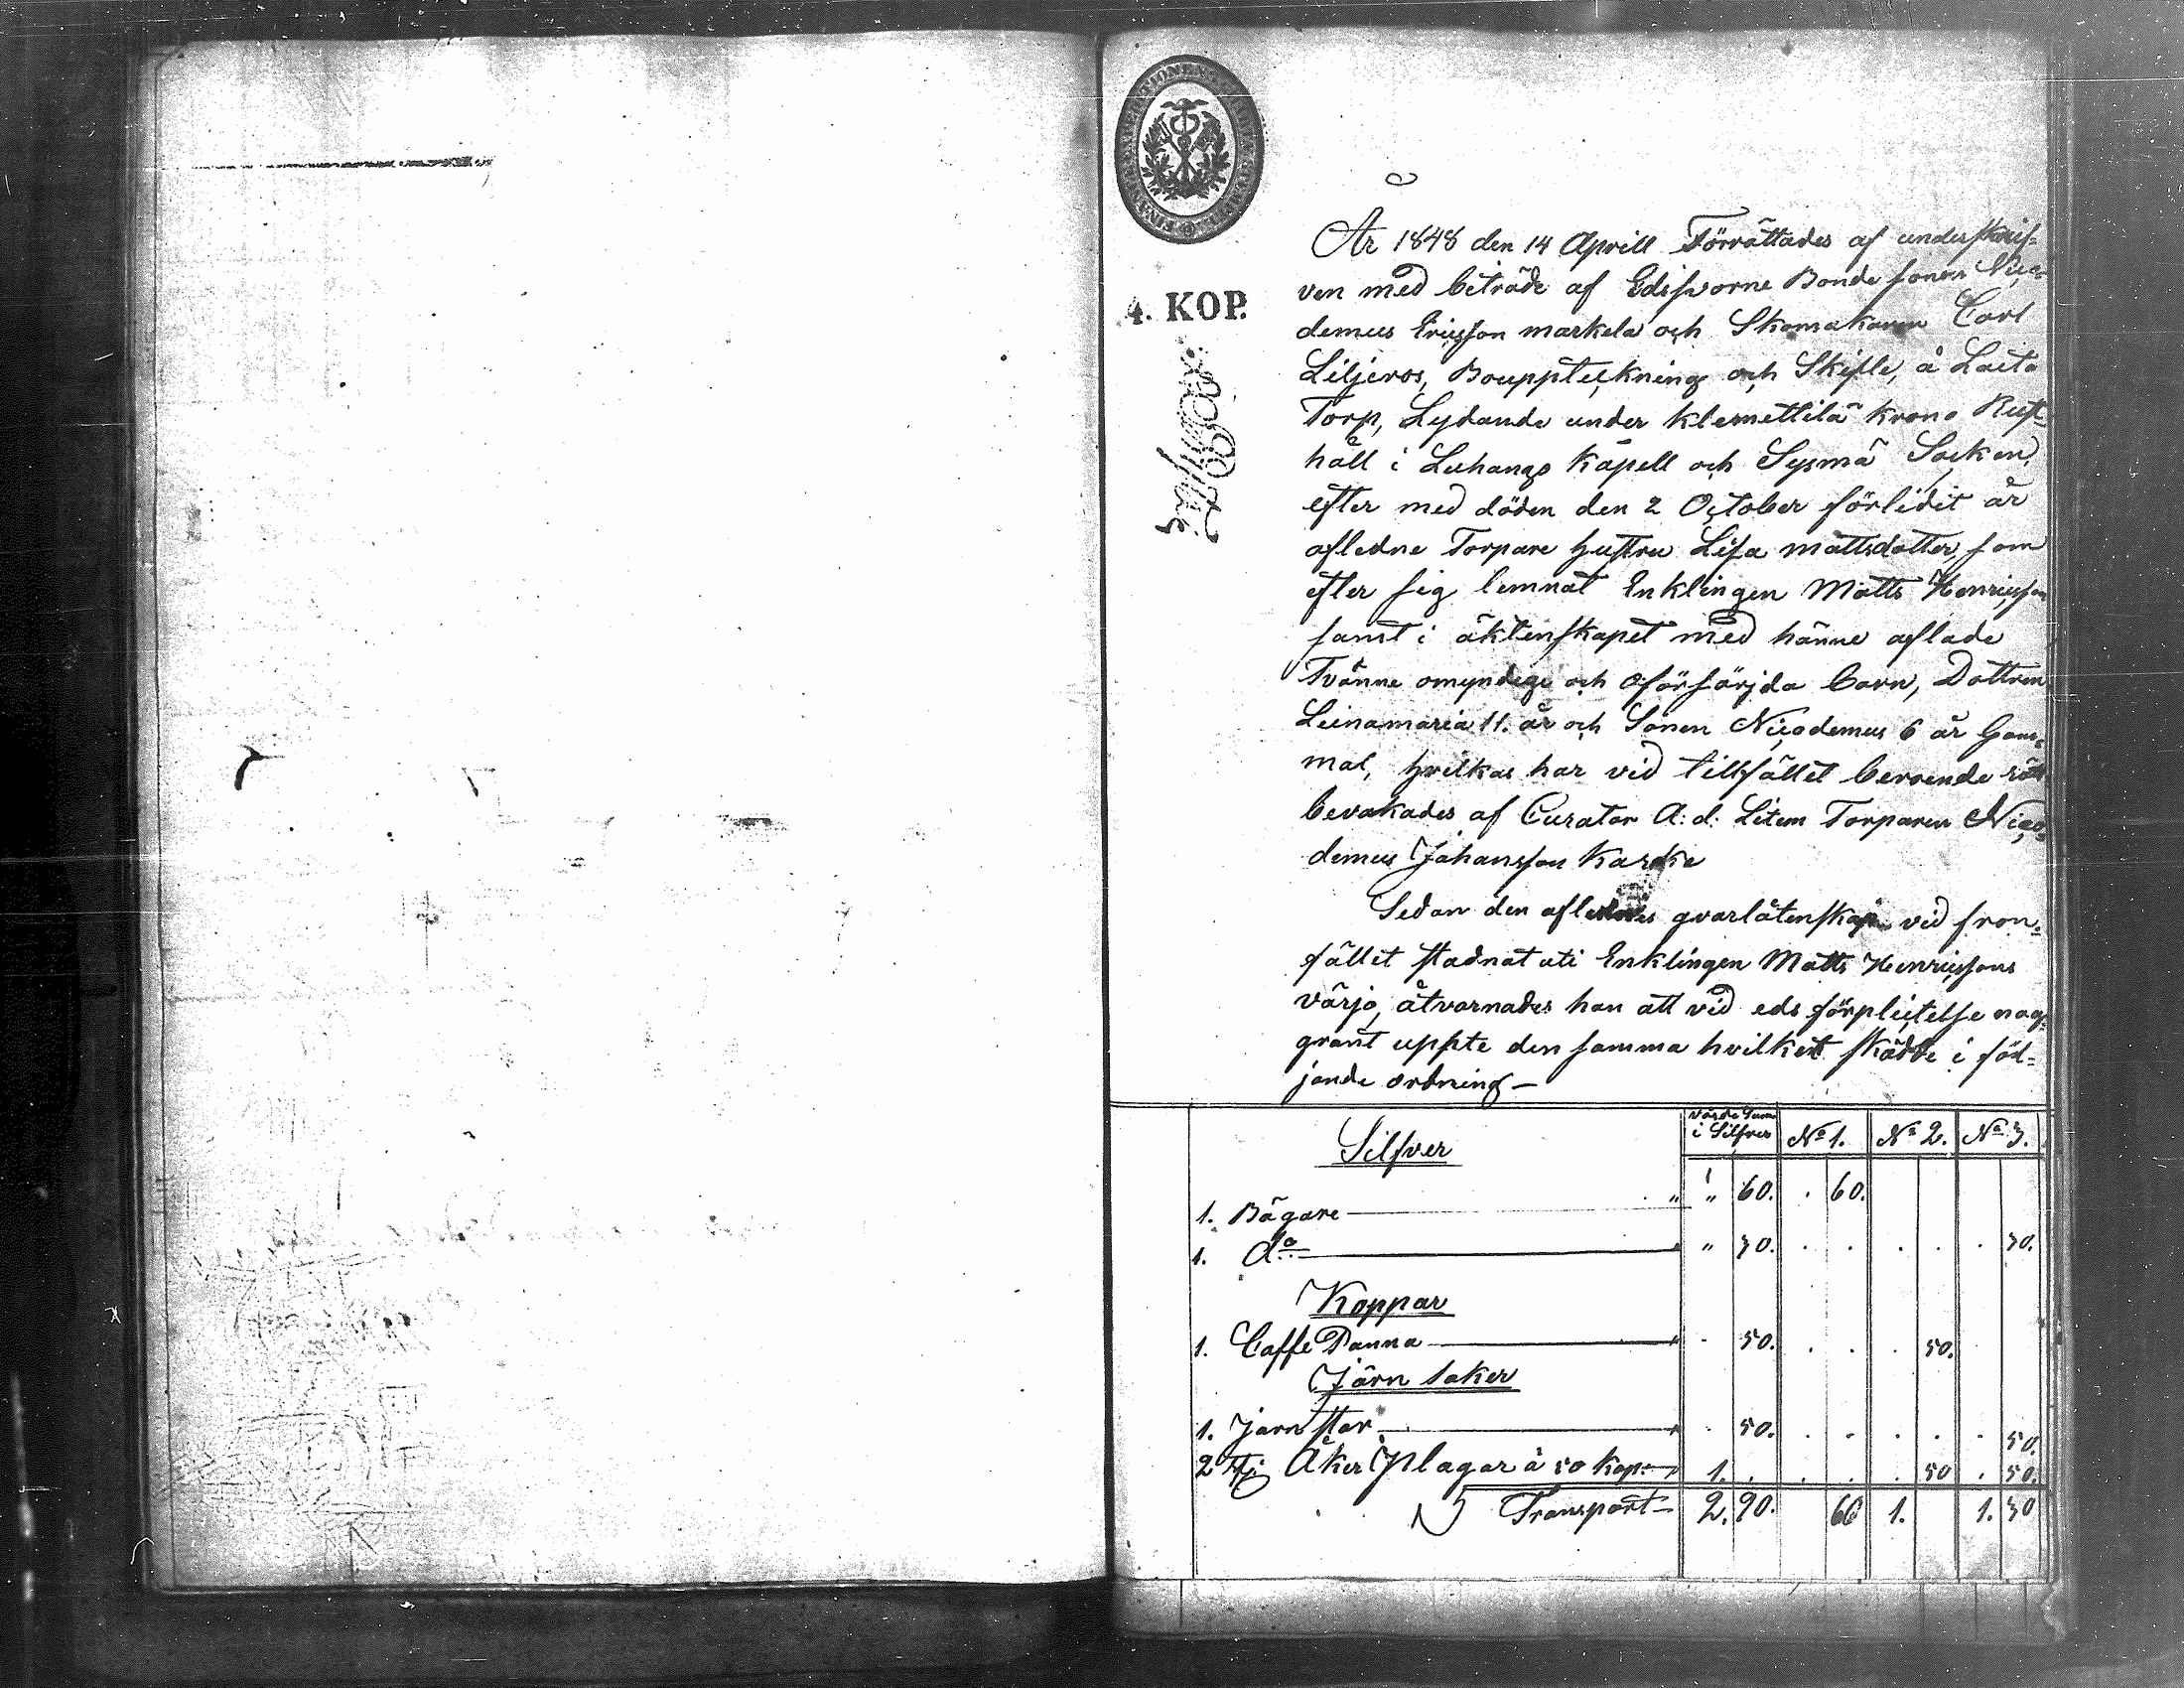 4. KOP.
År 1848 den 14 Aprill Förrättades af underskrif-
ven med beträde af Edsvorne Bonde sonen Nico-
demus Ericsson markela och Skomakaren Carl
Liljeros, Bouppteckning och Skifte, å Laita
Torp, Lydande under Klemettilä Krono Rust-
håll i Luhango Kapell och Sysmä Socken,
efter med döden den 2 October förlidit år
aflidne Torpare hustru Lisa mattsdotter, som
efter sig lemnat Enklingen Matts Henricsson
samt i äktenskapet med hänne aflade
Tvänne omyndige och oförsörjda barn, Dottren
Leenamaria 11. år och Sonen Nicodemus 6 år Gam-
mal, hvilkas har vid tillfället beroende rätt
bevakades af Curator A: d: Litem Torparen Nico-
demus Johansson Karke
Sedan den aflednes qvarlåtenskap vid fron-
fället stadnat uti Enklingen Matts Henricssons
värjo, åtvarnades han att vid eds förplictelse nog-
grant uppte den samma hvilket skädde i föl-
jande ordning —
Silfver värde Sum i Silfver No 1. No 2. No 3.
1. Bägare " " 60. . 60.
1. do " 30. . . . . . 30.
Koppar
1. Caffe Panna " . 50. . . . 50.
Järn saker
1. Järn stör " . 50. . . . . . 50.
2 st Åker Plagar à 50 kop: " 1. . . . . 50 . 50.
Transport 2. 90. 60 1. 1. 30